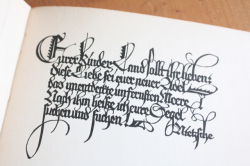 Eurer Kinder Land sollt ihr lieben:
diese Liebe sei euer neuer Adel
das unentdeckte im fernsten Meere!
Nach ihm heiße ich eure Segel
suchen und suchen!
Nietzsche